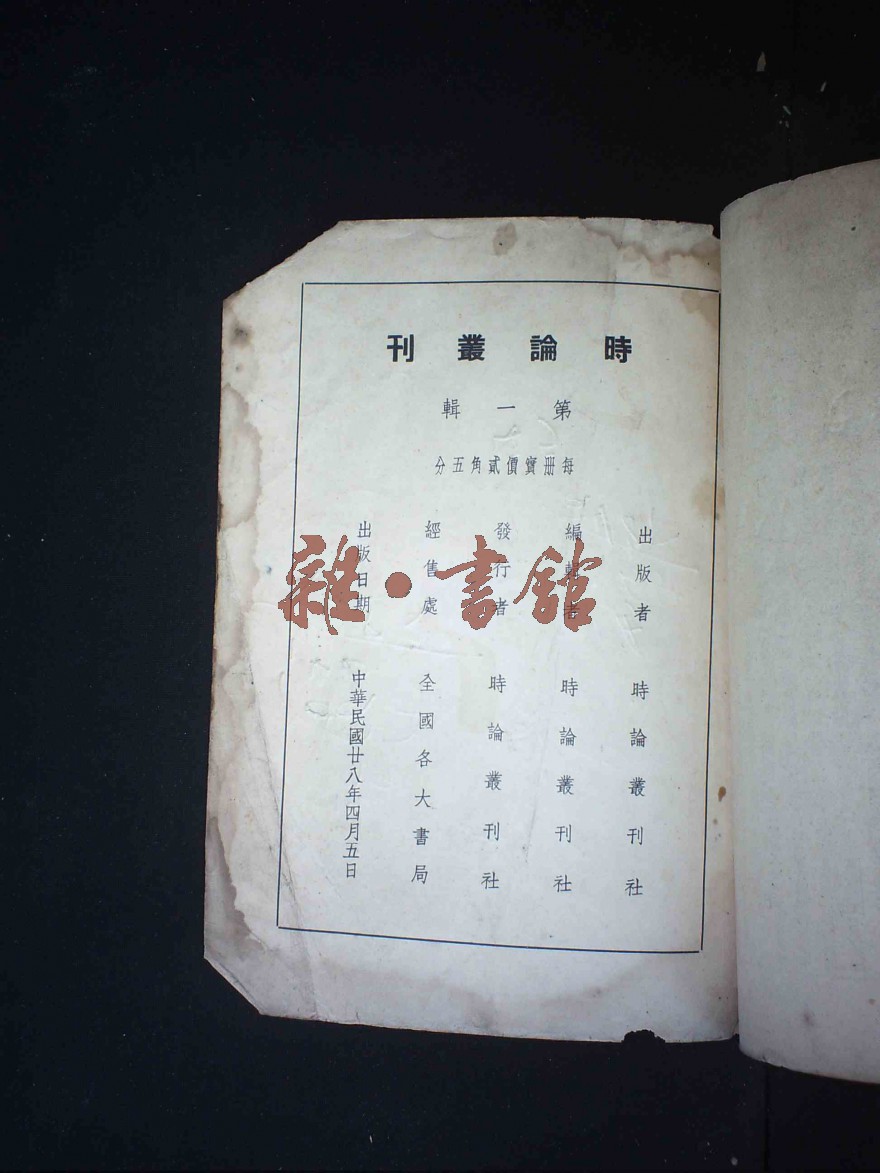 時論叢刊
第一輯
每册實價貳角五分
出版者 時論叢刊社
編輯者 時論叢刊社
發行者 時論叢刊社
經售處 全國各大書局
出版日期 中華民國廿八年四月五日
雜·書館